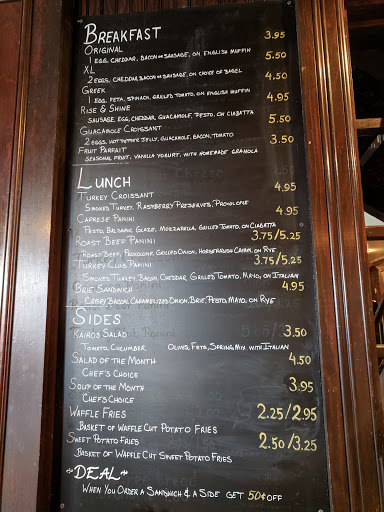 BREAKFAST
ORIGINAL 3.95
1 EGG, CHEDDAR, BACON OR SAUSAGE, ON ENGLISH MUFFIN
XL 5.50
2 EGGS, CHEDDAR, BACON OR SAUSAGE, ON CHOICE OF BAGEL
GREEK 4.50
1 EGG, FETA, SPINACH, GRILLED TOMATO, ON ENGLISH MUFFIN
RISE & SHINE 4.95
SAUSAGE, EGG, CHEDDAR, GUACAMOLE, PESTO, ON CIABATTA
GUACAMOLE CROISSANT 5.50
2 EGGS, HOT PEPPER JELLY, GUACAMOLE, BACON, TOMATO
FRUIT PARFAIT 3.50
SEASONAL FRUIT, VANILLA YOGURT, WITH HOMEMADE GRANOLA
LUNCH
TURKEY CROISSANT 4.95
SMOKED TURKEY, RASPBERRY PRESERVES, PROVOLONE
CAPRESE PANINI 4.95
PESTO, BALSAMIC GLAZE, MOZZARELLA, GRILLED TOMATO, ON CIABATTA
ROAST BEEF PANINI 3.75/5.25
ROAST BEEF, PROVOLONE, GRILLED ONION, HORSERADISH CREAM, ON RYE
TURKEY CLUB PANINI 3.75/5.25
SMOKED TURKEY, BACON, CHEDDAR, GRILLED TOMATO, MAYO, ON ITALIAN
BRIE SANDWICH 4.95
CRISPY BACON, CARAMELIZED ONION, BRIE, PESTO, MAYO, ON RYE
SIDES
KAIROS SALAD 3.50
TOMATO, CUCUMBER OLIVES, FETA, SPRING MIX WITH ITALIAN
SALAD OF THE MONTH 4.50
CHEF'S CHOICE
SOUP OF THE MONTH 3.95
CHEF'S CHOICE
WAFFLE FRIES 2.25/2.95
BASKET OF WAFFLE CUT POTATO FRIES
SWEET POTATO FRIES 2.50/3.25
BASKET OF WAFFLE CUT SWEET POTATO FRIES
DEAL
WHEN YOU ORDER A SANDWICH & A SIDE GET 50¢ OFF